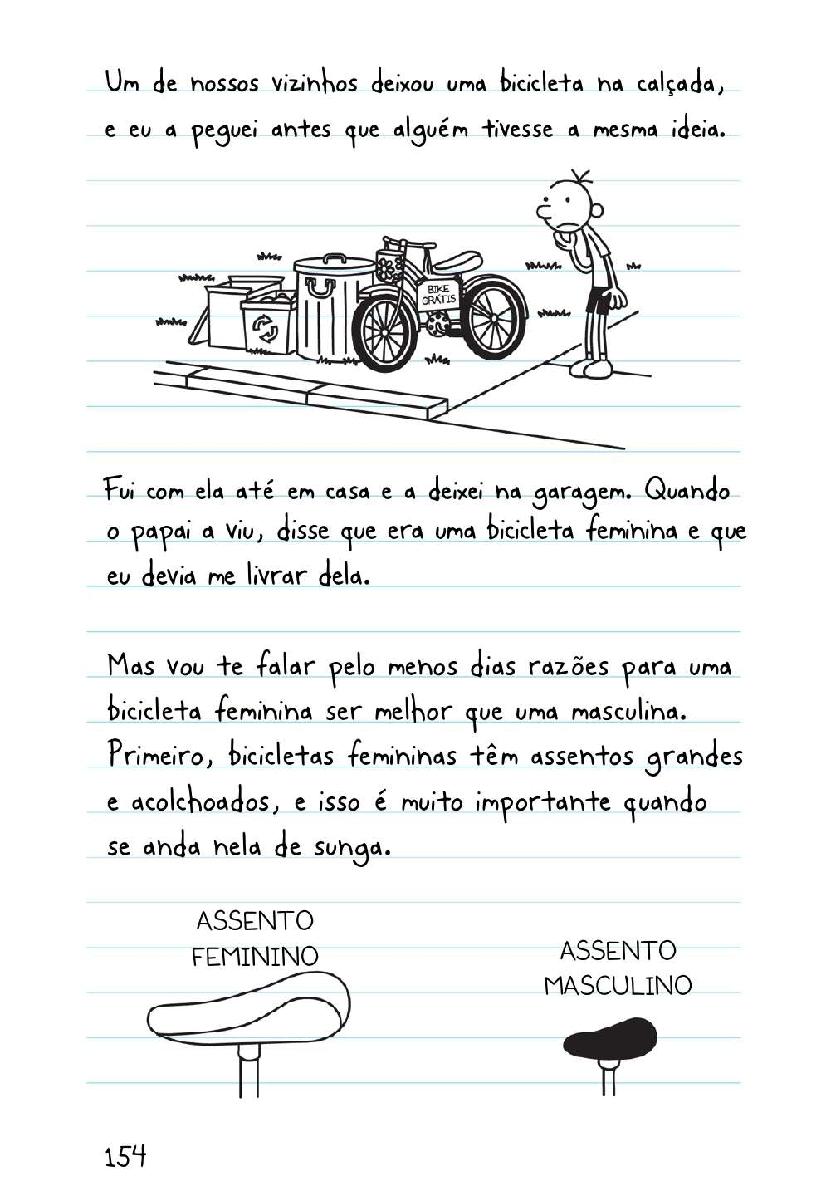 Um de nossos vizinhos deixou uma bicicleta na calçada,
e eu a peguei antes que alguém tivesse a mesma ideia.
BIKE
GRÁTIS
Fui com ela até em casa e a deixei na garagem. Quando
o papai a viu, disse que era uma bicicleta feminina e que
eu devia me livrar dela.
Mas vou te falar pelo menos dias razões para uma
bicicleta feminina ser melhor que uma masculina.
Primeiro, bicicletas femininas têm assentos grandes
e acolchoados, e isso é muito importante quando
se anda nela de sunga.
ASSENTO
FEMININO
ASSENTO
MASCULINO
154